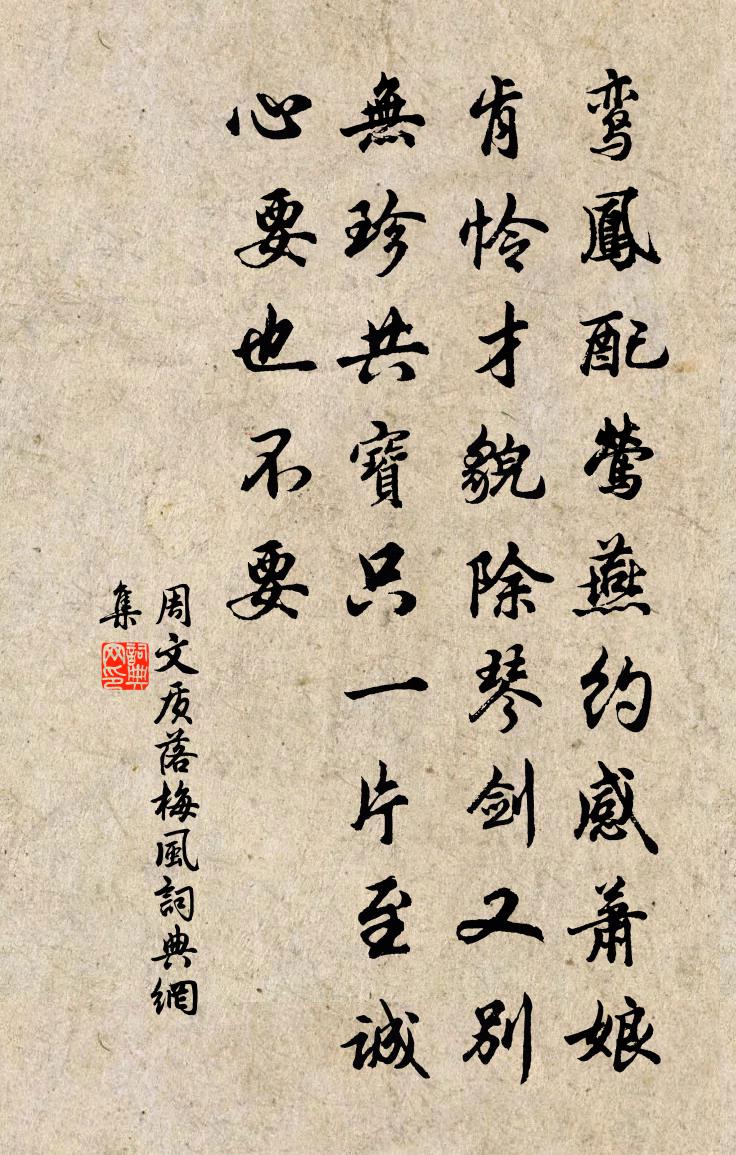 鸾鳳配莺燕约感萧娘
肯怜才貌除琴剑又别
無珍共寶只一片至誠
心要也不要
周文质落梅風詞典網
集
詞典网印